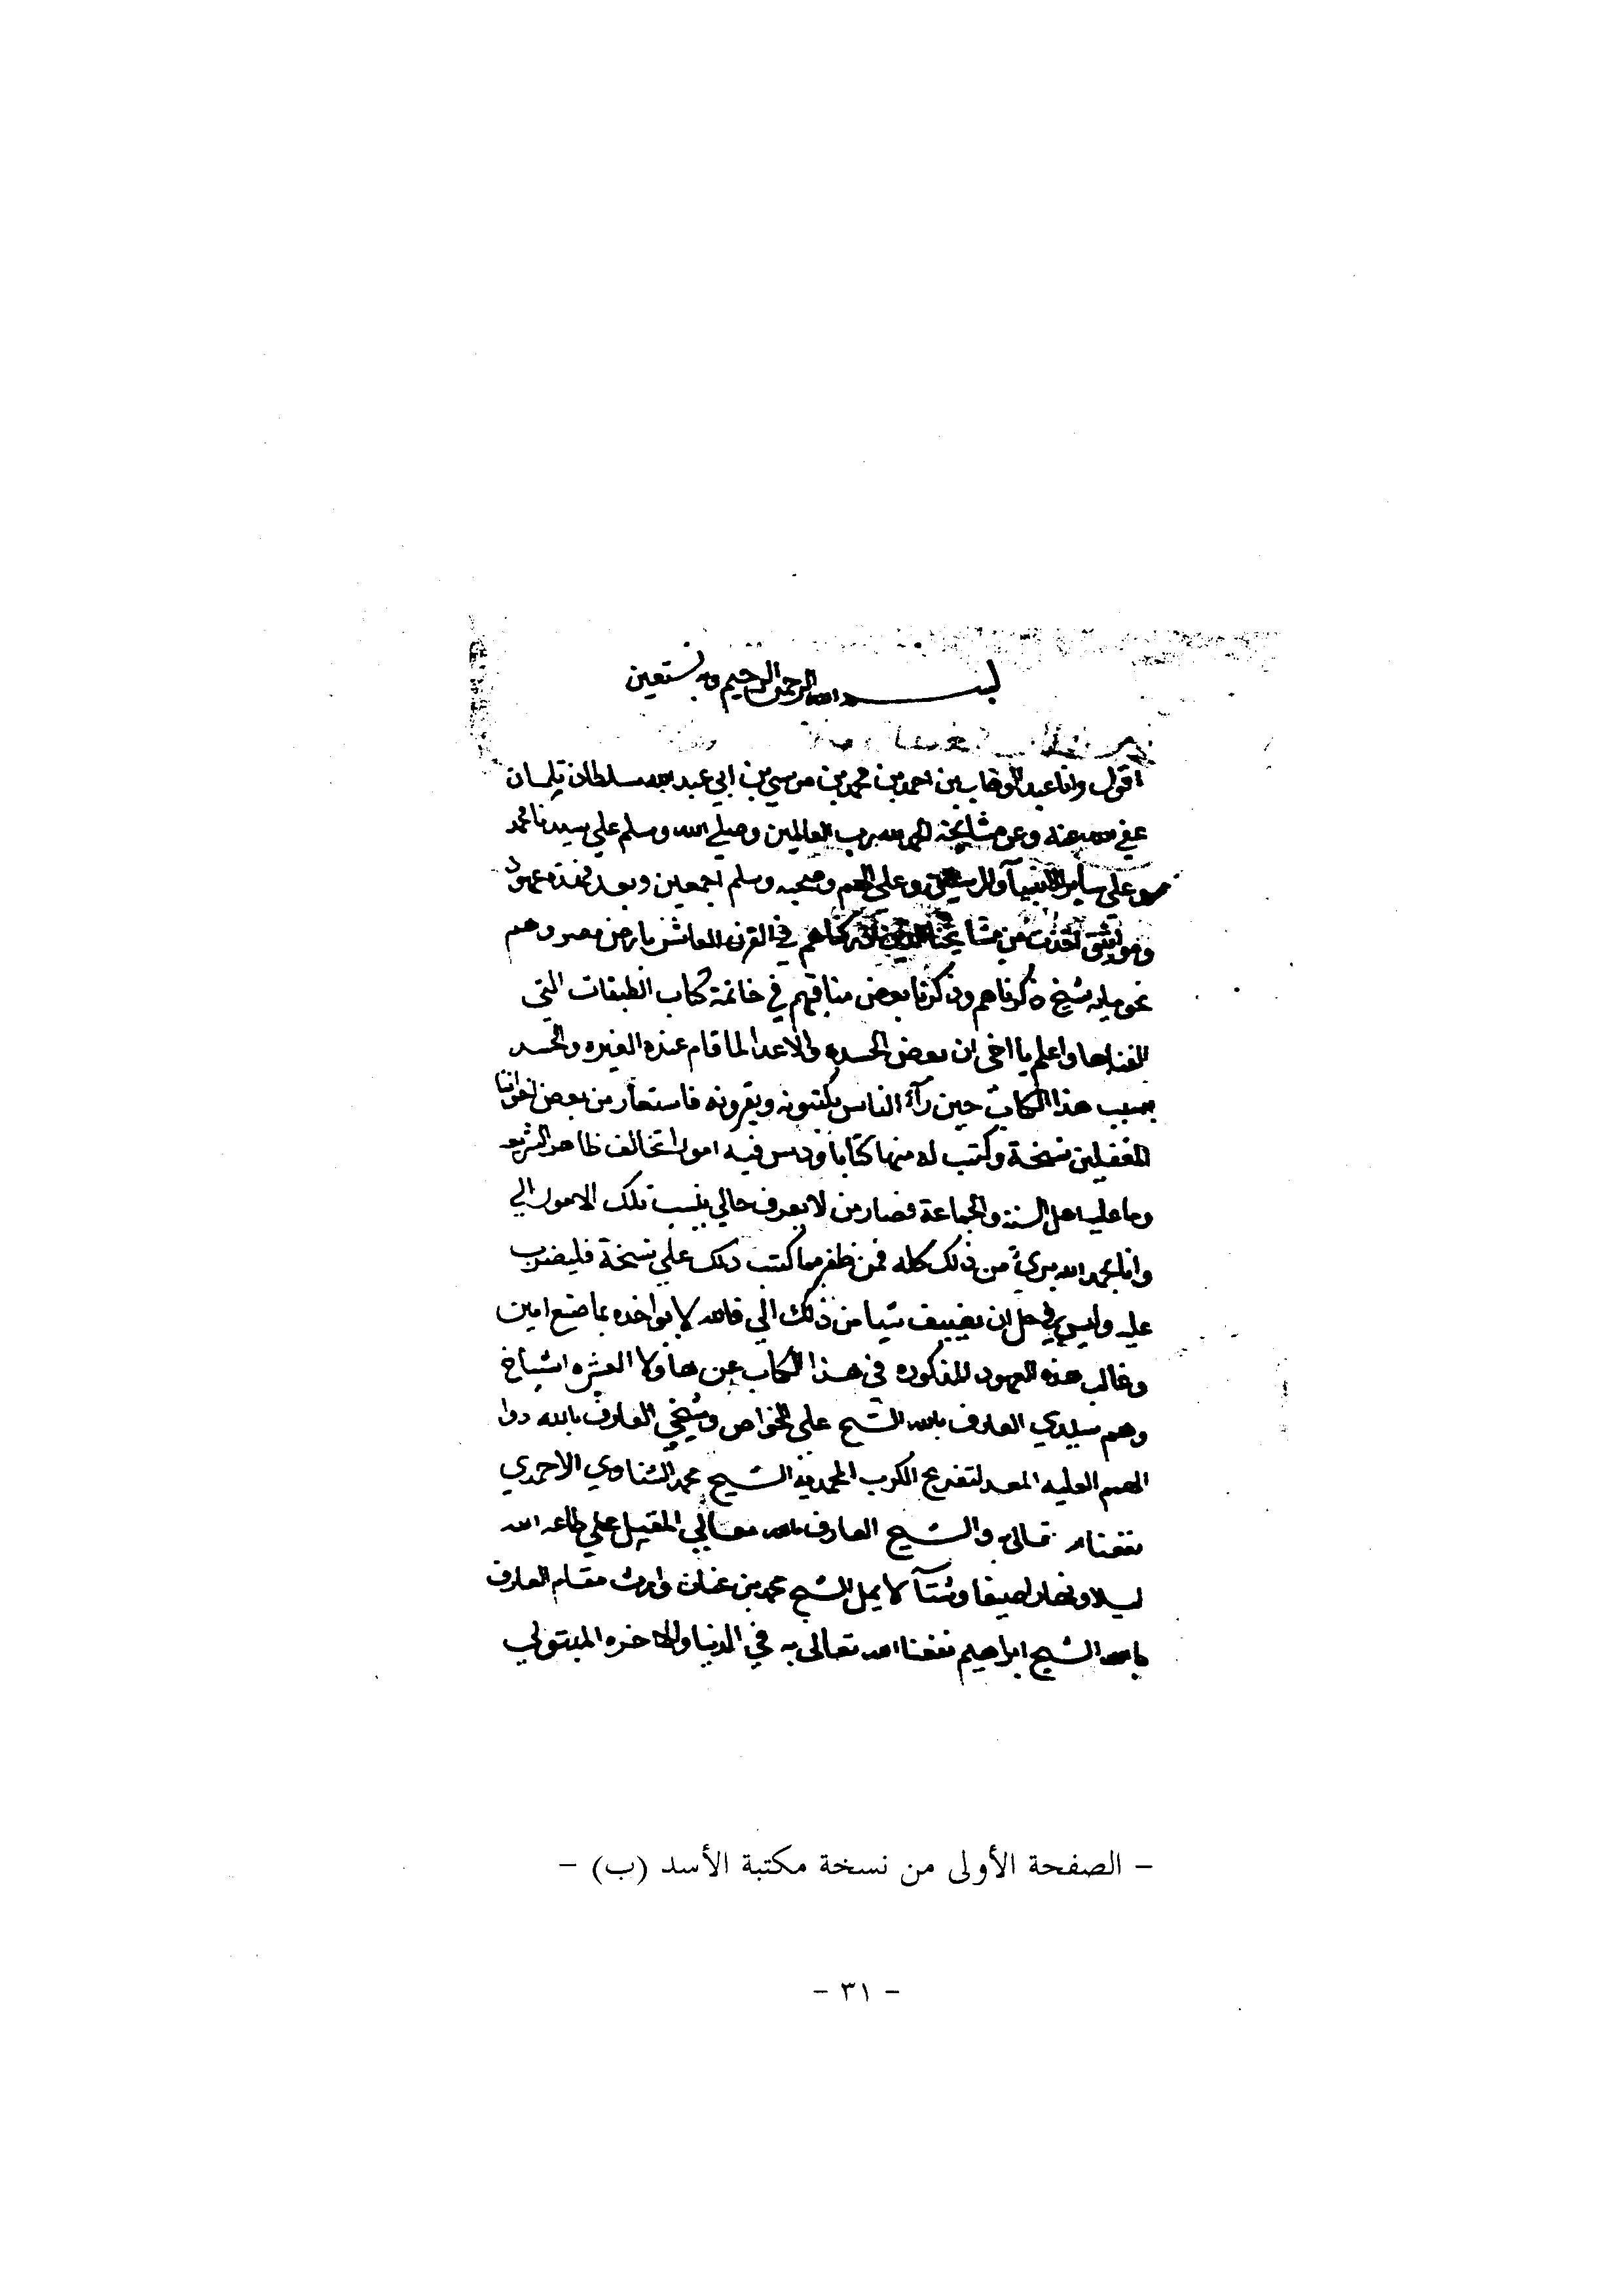 بسم الله الرحمن الرحيم وبه نستعين
اقول وانا عبد الوهاب بن احمد بن محمد بن موسي بن ابي عبد الله سلطان تلمسان
عفي الله عنه وعن مشايخه الحمد لله رب العالمين وصلي الله وسلم علي سيدنا محمد
وعلي ساير الانبيآ والمرسلين وعلي الهم وصحبه وسلم اجمعين وبعد فهذه عهود
ومواثيق اخذت من مشايخنا الذين ادركناهم في القرن العاشر بارض مصر وهم
نحو مايه شيخ ذكرناهم وذكرنا بعض مناقبهم في خاتمة كتاب الطبقات التي
الفناها واعلم يا اخي ان بعض الحسده والاعدا لما قام عنده الغيره والحسد
بسبب هذا الكتاب حين رآء الناس يكتبونه ويقرونه فاستعار من بعض اخواننا
المغفلين نسخة وكتب له منها كتابا ودس فيه امورا تخالف ظاهر الشريعه
وما عليه اهل السنة والجماعة فصار من لا يعرف حالي ينسب تلك الامور الي
وانا بحمد الله بريء من ذلك كله فمن ظفر بما كتب ذلك علي نسخة فليضرب
عليه وليس في حل ان يضيف شيا من ذلك الي فالله لا يواخذه بما صنع امين
وغالب هذه العهود المذكوره في هذا الكتاب عن هاولا العشره اشياخ
وهم سيدي العارف بالله الشيخ علي الخواص وشيخي العارف بالله ذوا
الهمم العليه المعد لتفريج الكرب المحمديه الشيخ محمد الشناوي الاحمدي
نفعنا الله تعالي به والشيخ العارف بالله تعالي المقبل علي طاعه الله
ليلا ونهارا صيفا وشتآ لا يمل الشيخ محمد بن عنان وارث مقام العارف
بالله الشيخ ابراهيم نفعنا الله تعالي به في الدنيا والاخره المبتولي
- الصفحة الأولى من نسخة مكتبة الأسد (ب) -
- ٣١ -